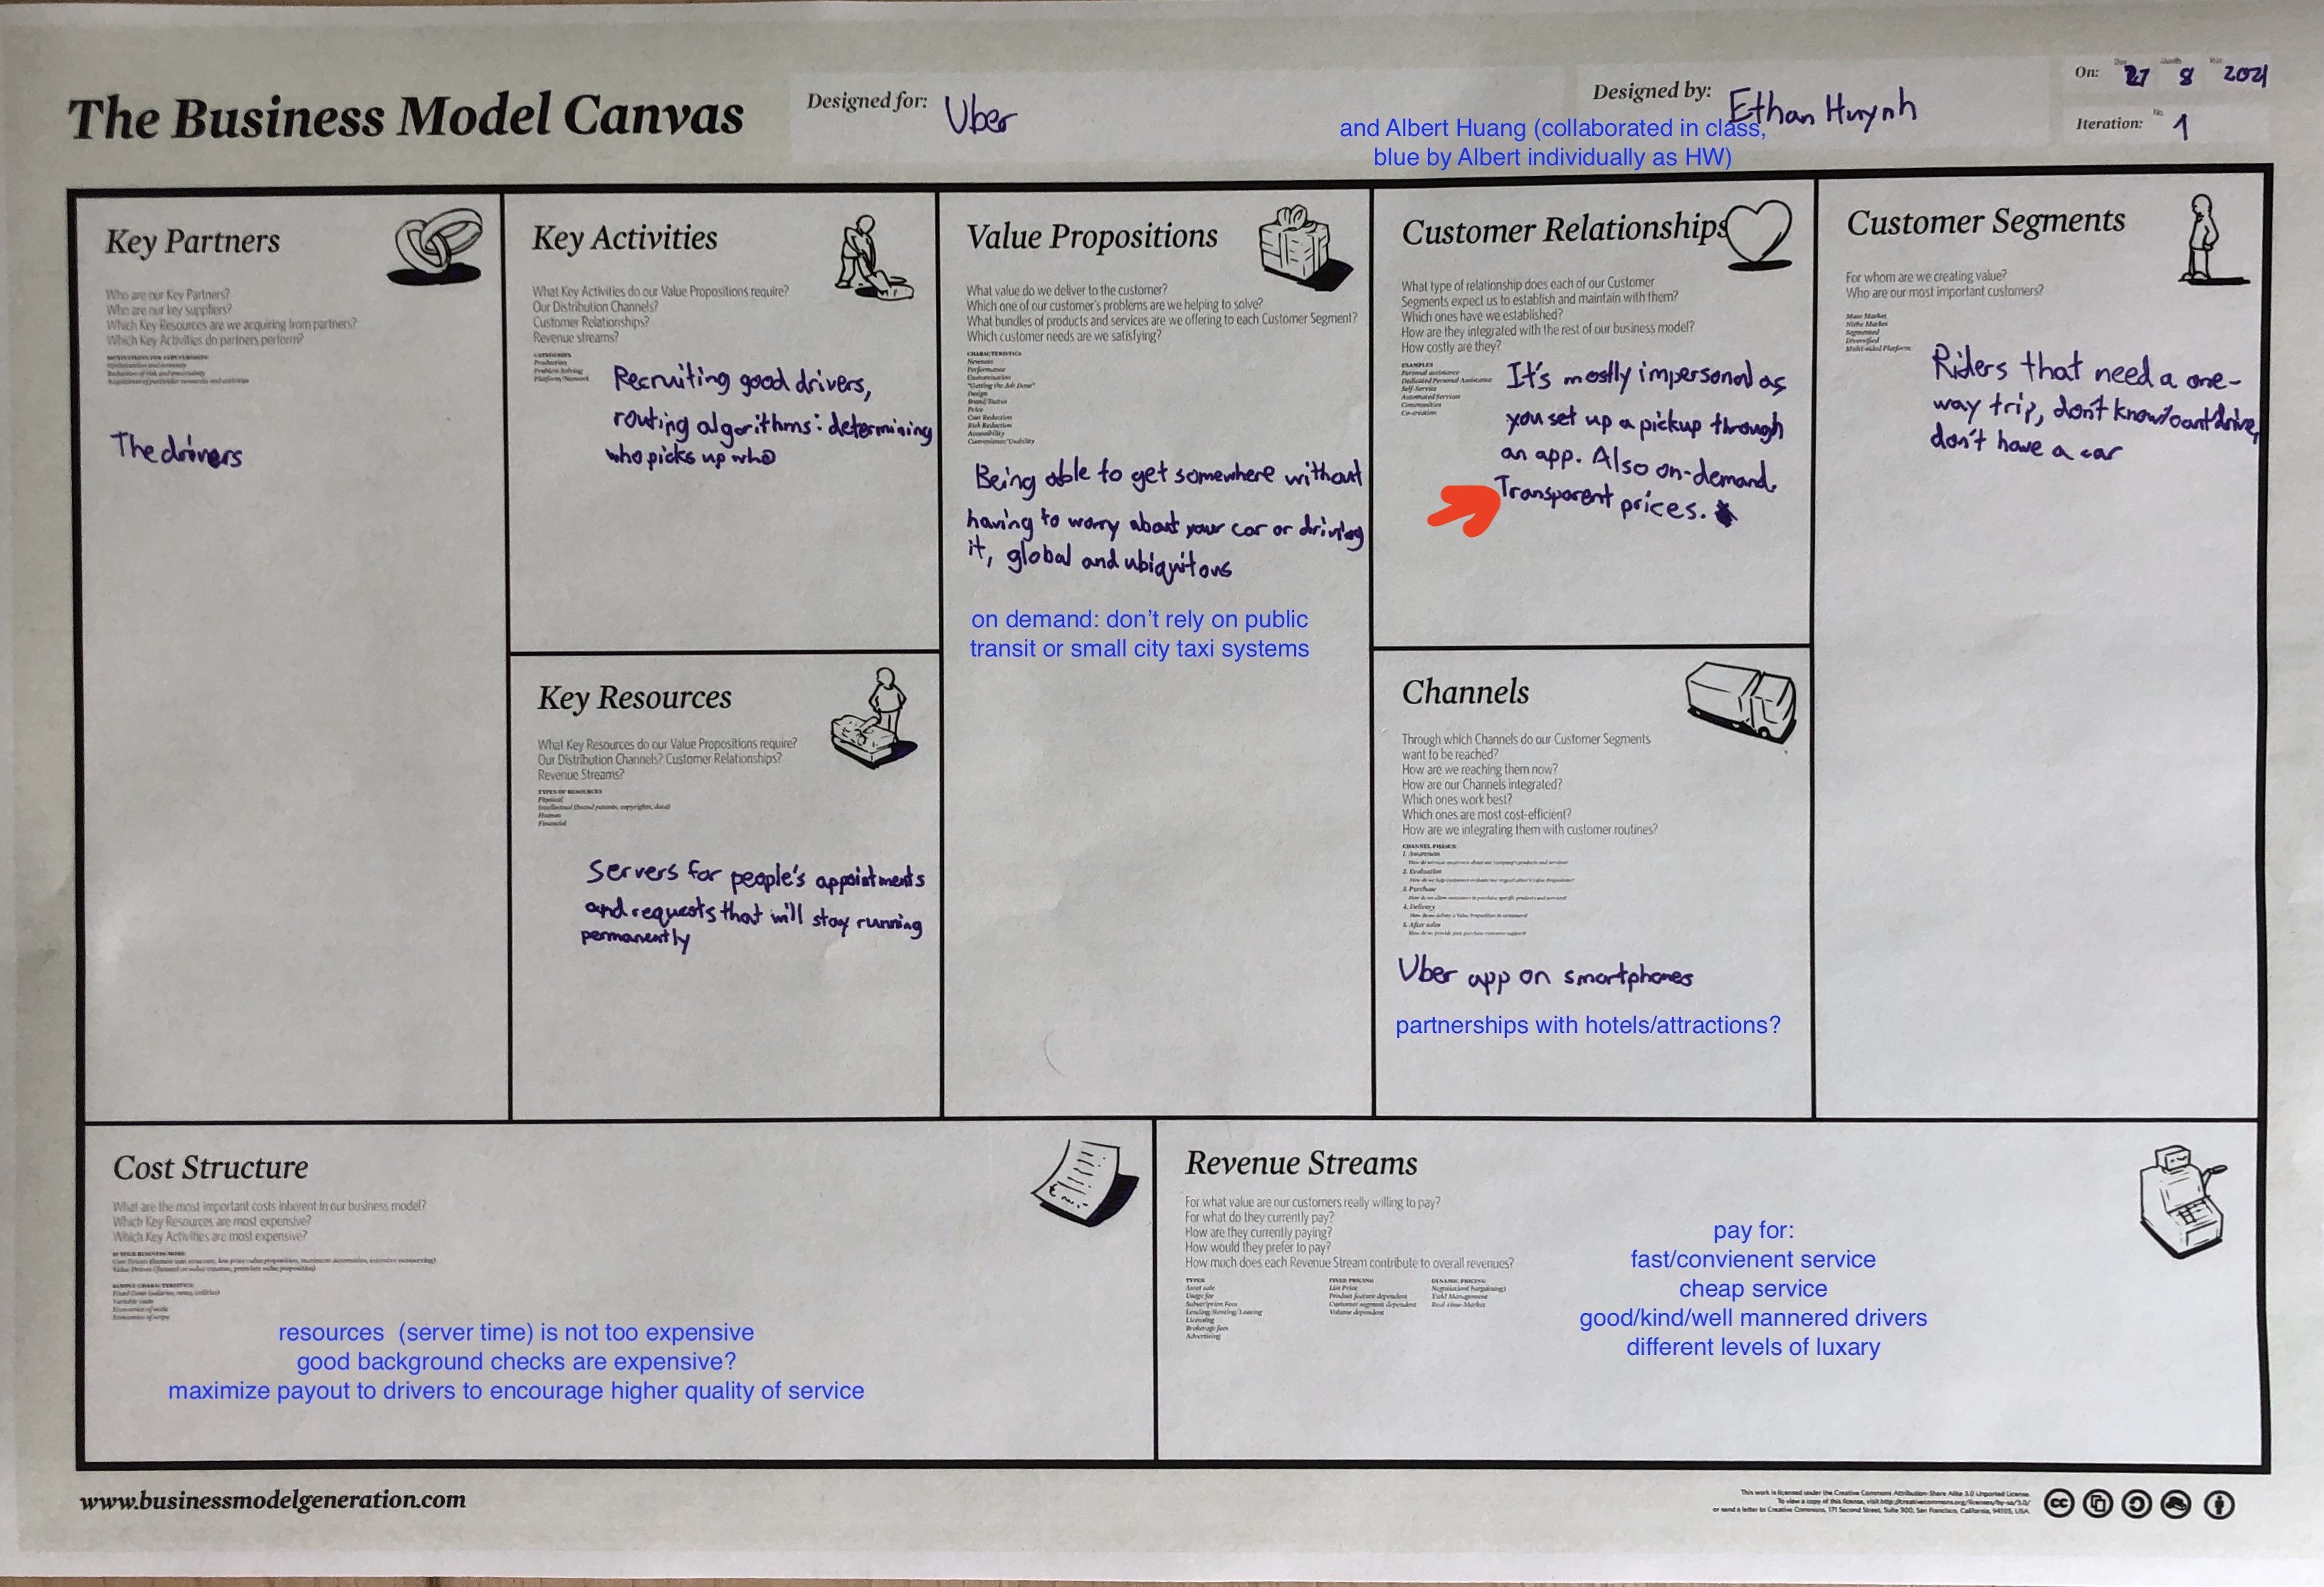 The Business Model Canvas
Designed for:
Uber
Designed by:
Ethan Huynh
and Albert Huang (collaborated in class,
blue by Albert individually as HW)
On:
Day
Month
Year
27 8 2021
Iteration:
No.
1
Key Partners
Who are our Key Partners?
Who are our key suppliers?
Which Key Resources are we acquiring from partners?
Which Key Activities do partners perform?
The drivers
Key Activities
What Key Activities do our Value Propositions require?
Our Distribution Channels?
Customer Relationships?
Revenue streams?
CATEGORIES
Production
Problem Solving
Platform/Network
Recruiting good drivers,
routing algorithms: determining
who picks up who
Key Resources
What Key Resources do our Value Propositions require?
Our Distribution Channels? Customer Relationships?
Revenue Streams?
TYPES OF RESOURCES
Physical
Intellectual (brand patents, copyrights, data)
Human
Financial
Servers for people's appointments
and requests that will stay running
permanently
Value Propositions
What value do we deliver to the customer?
Which one of our customer's problems are we helping to solve?
What bundles of products and services are we offering to each Customer Segment?
Which customer needs are we satisfying?
CHARACTERISTICS
Newness
Performance
Customization
"Getting the Job Done"
Design
Brand/Status
Price
Cost Reduction
Risk Reduction
Accessibility
Convenience/Usability
Being able to get somewhere without
having to worry about your car or driving
it, global and ubiquitous
on demand: don't rely on public
transit or small city taxi systems
Customer Relationships
What type of relationship does each of our Customer
Segments expect us to establish and maintain with them?
Which ones have we established?
How are they integrated with the rest of our business model?
How costly are they?
EXAMPLES
Personal assistance
Dedicated Personal Assistance
Self-Service
Automated Services
Communities
Co-creation
It's mostly impersonal as
you set up a pickup through
an app. Also on-demand.
Transparent prices.
Channels
Through which Channels do our Customer Segments
want to be reached?
How are we reaching them now?
How are our Channels integrated?
Which ones work best?
Which ones are most cost-efficient?
How are we integrating them with customer routines?
CHANNEL PHASES
1. Awareness
2. Evaluation
3. Purchase
4. Delivery
5. After sales
Uber app on smartphones
partnerships with hotels/attractions?
Customer Segments
For whom are we creating value?
Who are our most important customers?
Mass Market
Niche Market
Segmented
Diversified
Multi-sided Platform
Riders that need a one-
way trip, don't know/can't drive,
don't have a car
Cost Structure
What are the most important costs inherent in our business model?
Which Key Resources are most expensive?
Which Key Activities are most expensive?
resources (server time) is not too expensive
good background checks are expensive?
maximize payout to drivers to encourage higher quality of service
Revenue Streams
For what value are our customers really willing to pay?
For what do they currently pay?
How are they currently paying?
How would they prefer to pay?
How much does each Revenue Stream contribute to overall revenues?
TYPES
Asset sale
Usage fee
Subscription Fees
Lending/Renting/Leasing
Licensing
Brokerage fees
Advertising
FIXED PRICING
List Price
Product feature dependent
Customer segment dependent
Volume dependent
DYNAMIC PRICING
Negotiation( bargaining)
Yield Management
Real-time-Market
pay for:
fast/convienent service
cheap service
good/kind/well mannered drivers
different levels of luxary
www.businessmodelgeneration.com
This work is licensed under the Creative Commons Attribution-Share Alike 3.0 Unported License.
To view a copy of this license, visit http://creativecommons.org/licenses/by-sa/3.0/
or send a letter to Creative Commons, 171 Second Street, Suite 300, San Francisco, California, 94105, USA.
cc